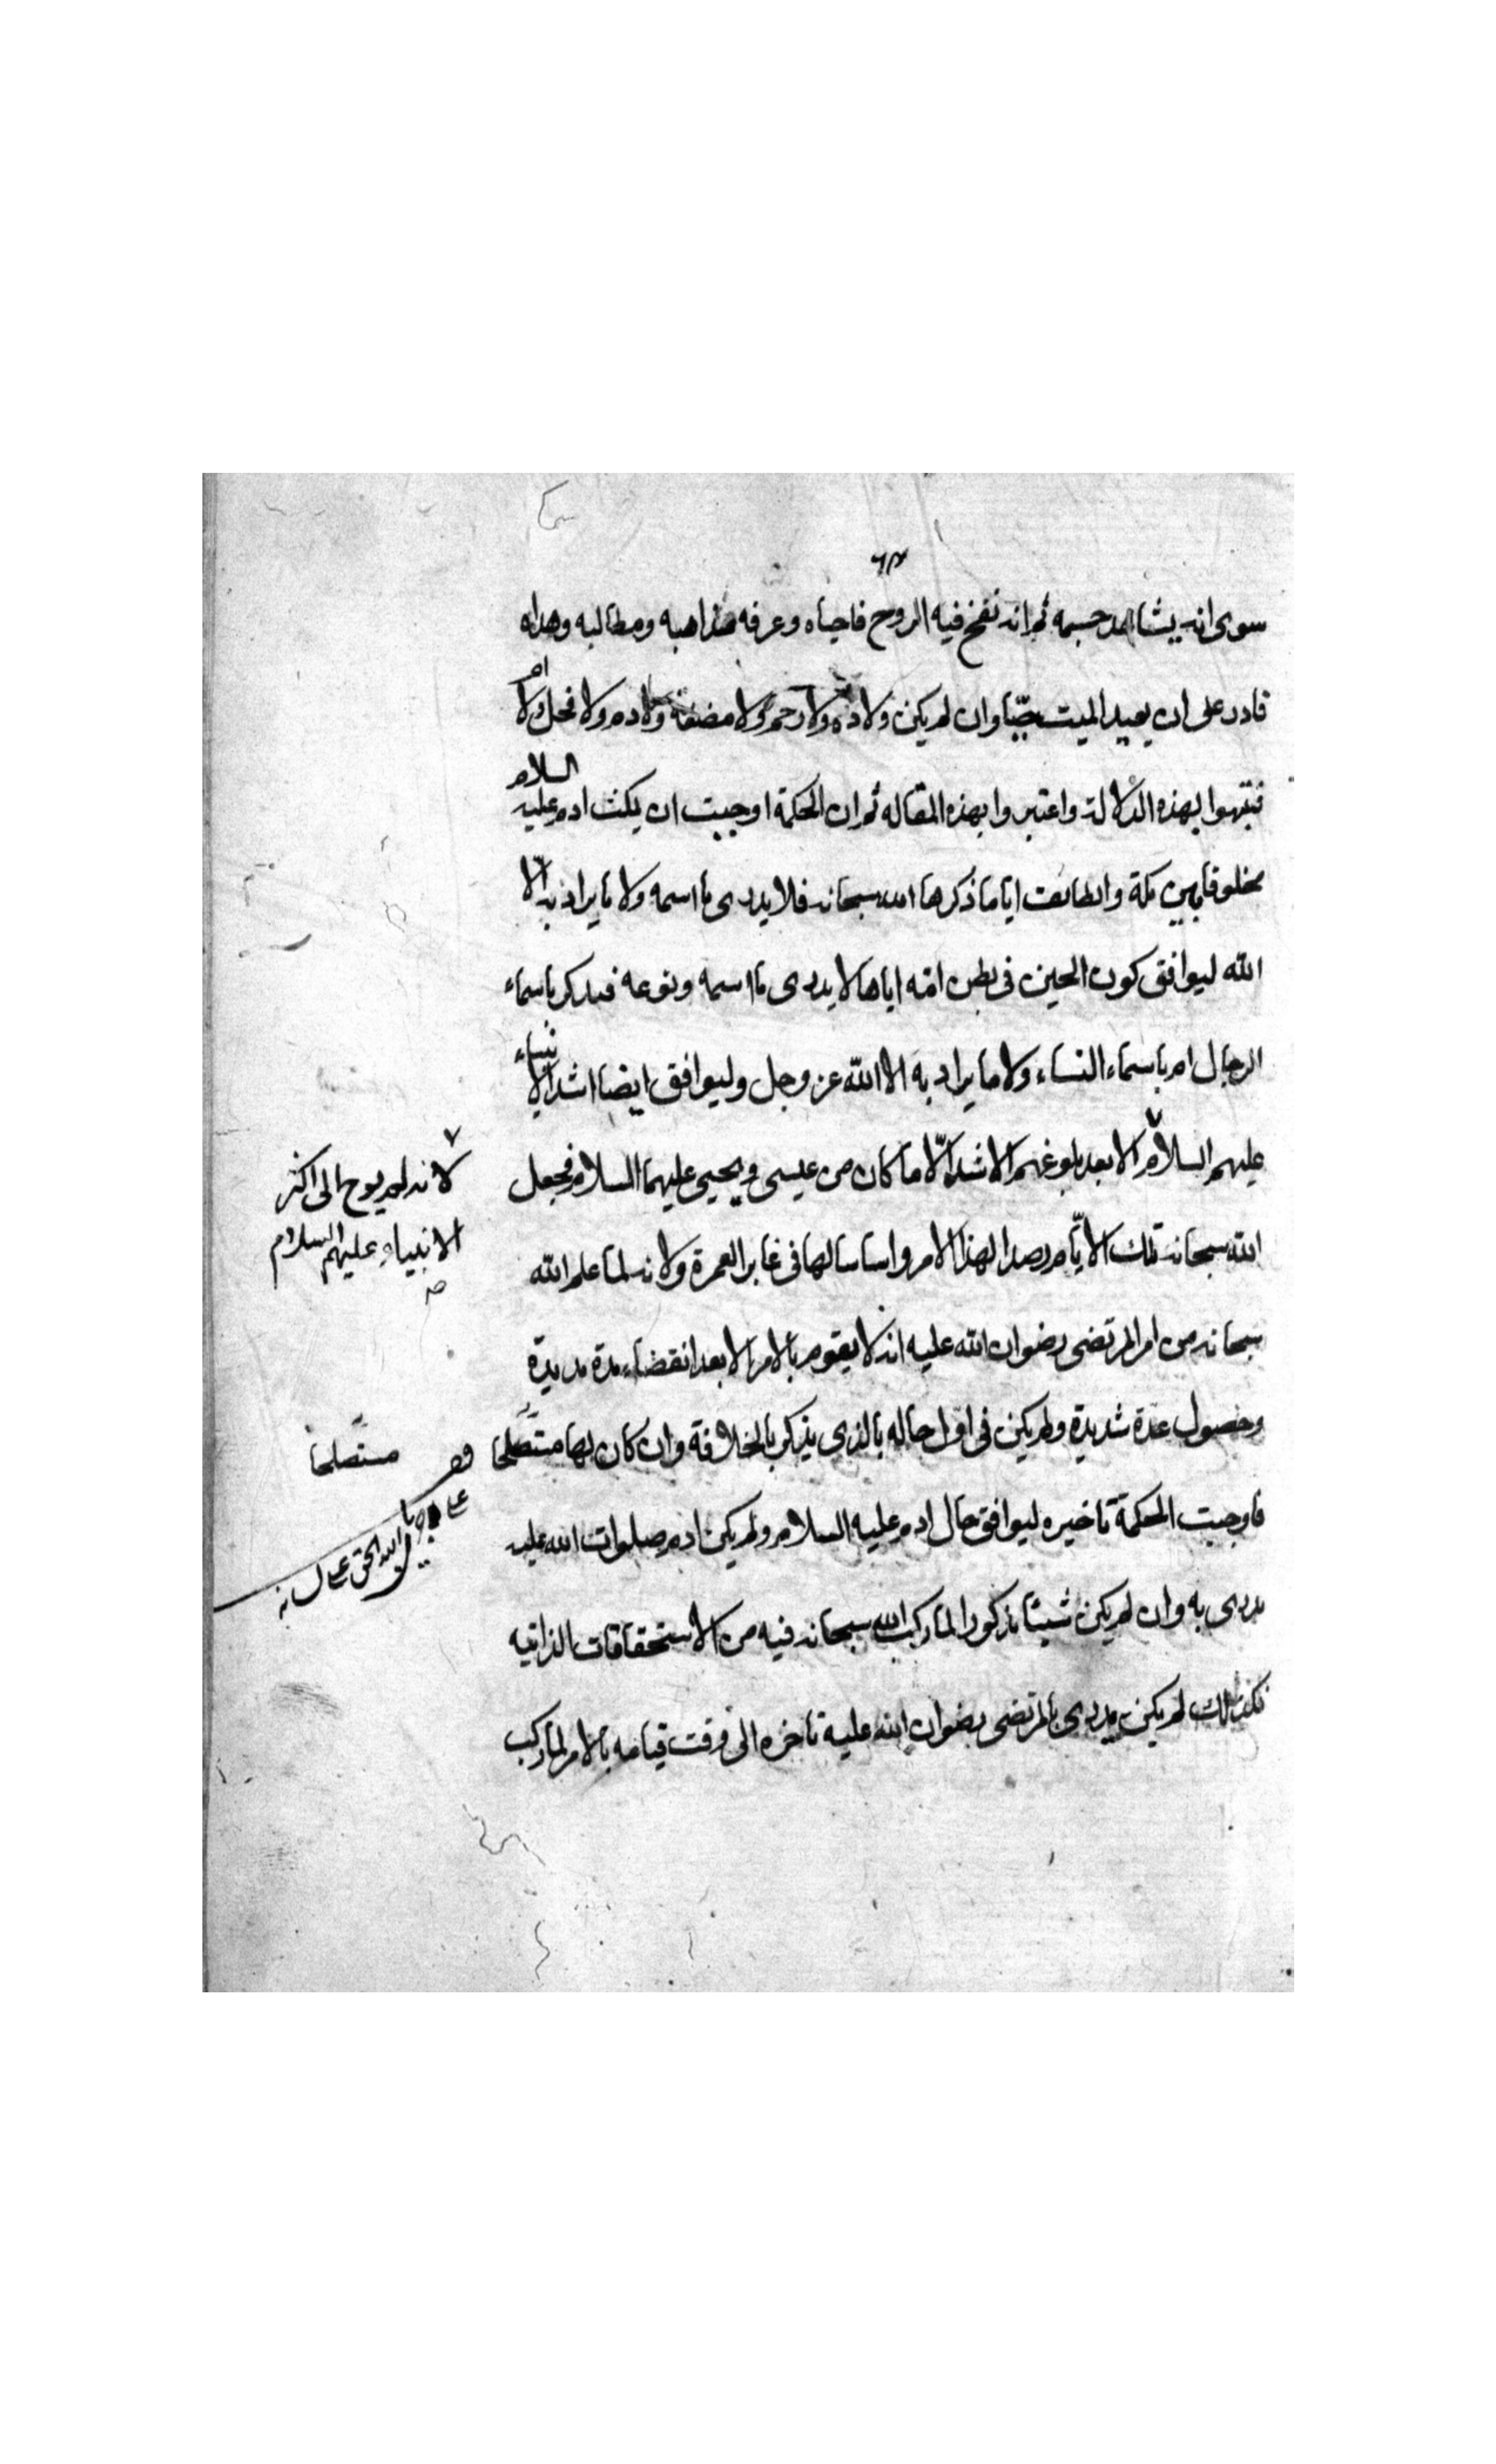 ٦٣
سوى انه يشاهد جسمه ثم انه نفخ فيه الروح فاحياه وعرفه مذاهبه ومطالبه وهداه
قادر على ان يعيد الميت حيّا وان لم يكن ولاده ولا رحم ولا مضغة ولا دم ولا فحل ولا ام
فتنبهوا بهذه الدلالة واعتبروا بهذه المقاله ثم ان الحكمة اوجبت ان يمكث ادم عليه السلام
مخلوقا بين مكة والطائف اياما ذكرها الله سبحانه فلا يدرى ما اسمه ولا ما يراد به الّا
الله ليوافق كون الجنين فى بطن امّه اياها لا يدرى ما اسمه ونوعه فيذكر باسماء
الرجال ام باسماء النساء ولا ما يراد به الا الله عز وجل وليوافق ايضا اشد الانبياء
عليهم السلام الا بعد بلوغهم الاشد الّا ما كان من عيسى ويحيى عليهما السلام فجعل
لانه لم يوح الى اكثر
الانبياء عليهم السلام
الله سبحانه تلك الايّام رصدا لهذا الامر واساسا لها فى غابر العمرة ولانه لما علم الله
سبحانه من امر المرتضى رضوان الله عليه انه لا يقوم بالامر الا بعد انقضاء مدة مديدة
وحصول عدة شديدة ولم يكن فى اول حاله بالذى يذكر بالخلافة وان كان بها مستصلحا
مستصلحا
فاوجبت الحكمة تاخيره ليوافق حال ادم عليه السلام ولم يكن ادم صلوات الله عليه
يدرى به وان لم يكن شيئا مذكورا لما ركب الله سبحانه فيه من الاستحقاقات الذاتيه
فكذلك لم يكن يدرى بالمرتضى رضوان الله عليه تاخره الى وقت قيامه بالامر لما ركب